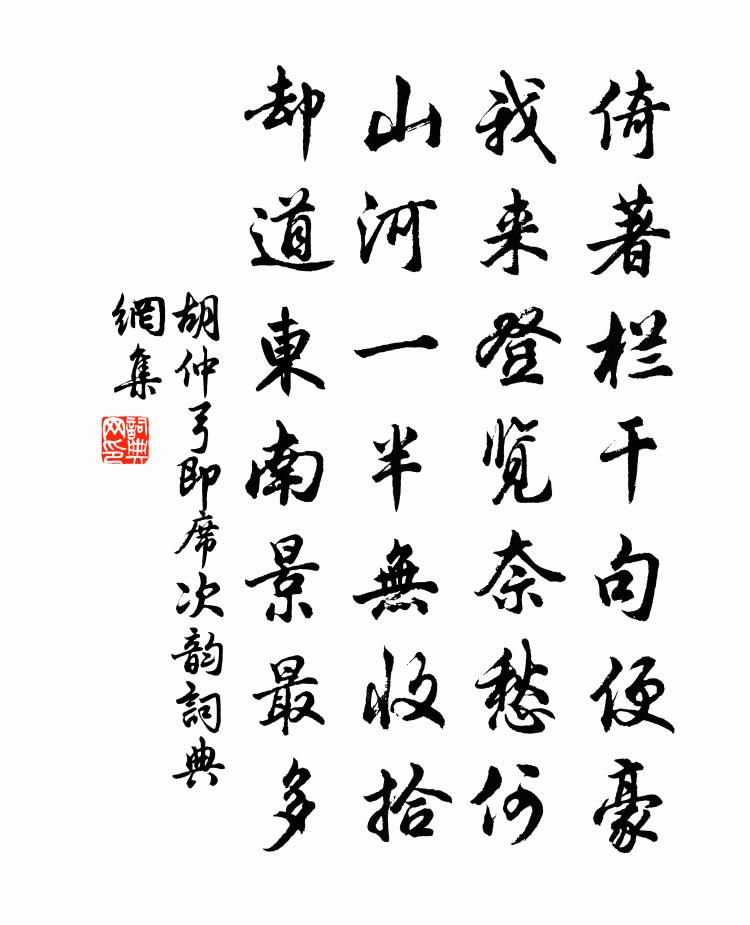 倚著栏干句便豪
我来登览奈愁何
山河一半無收拾
却道東南景最多
胡仲弓即席次韵詞典
網集
詞典網印